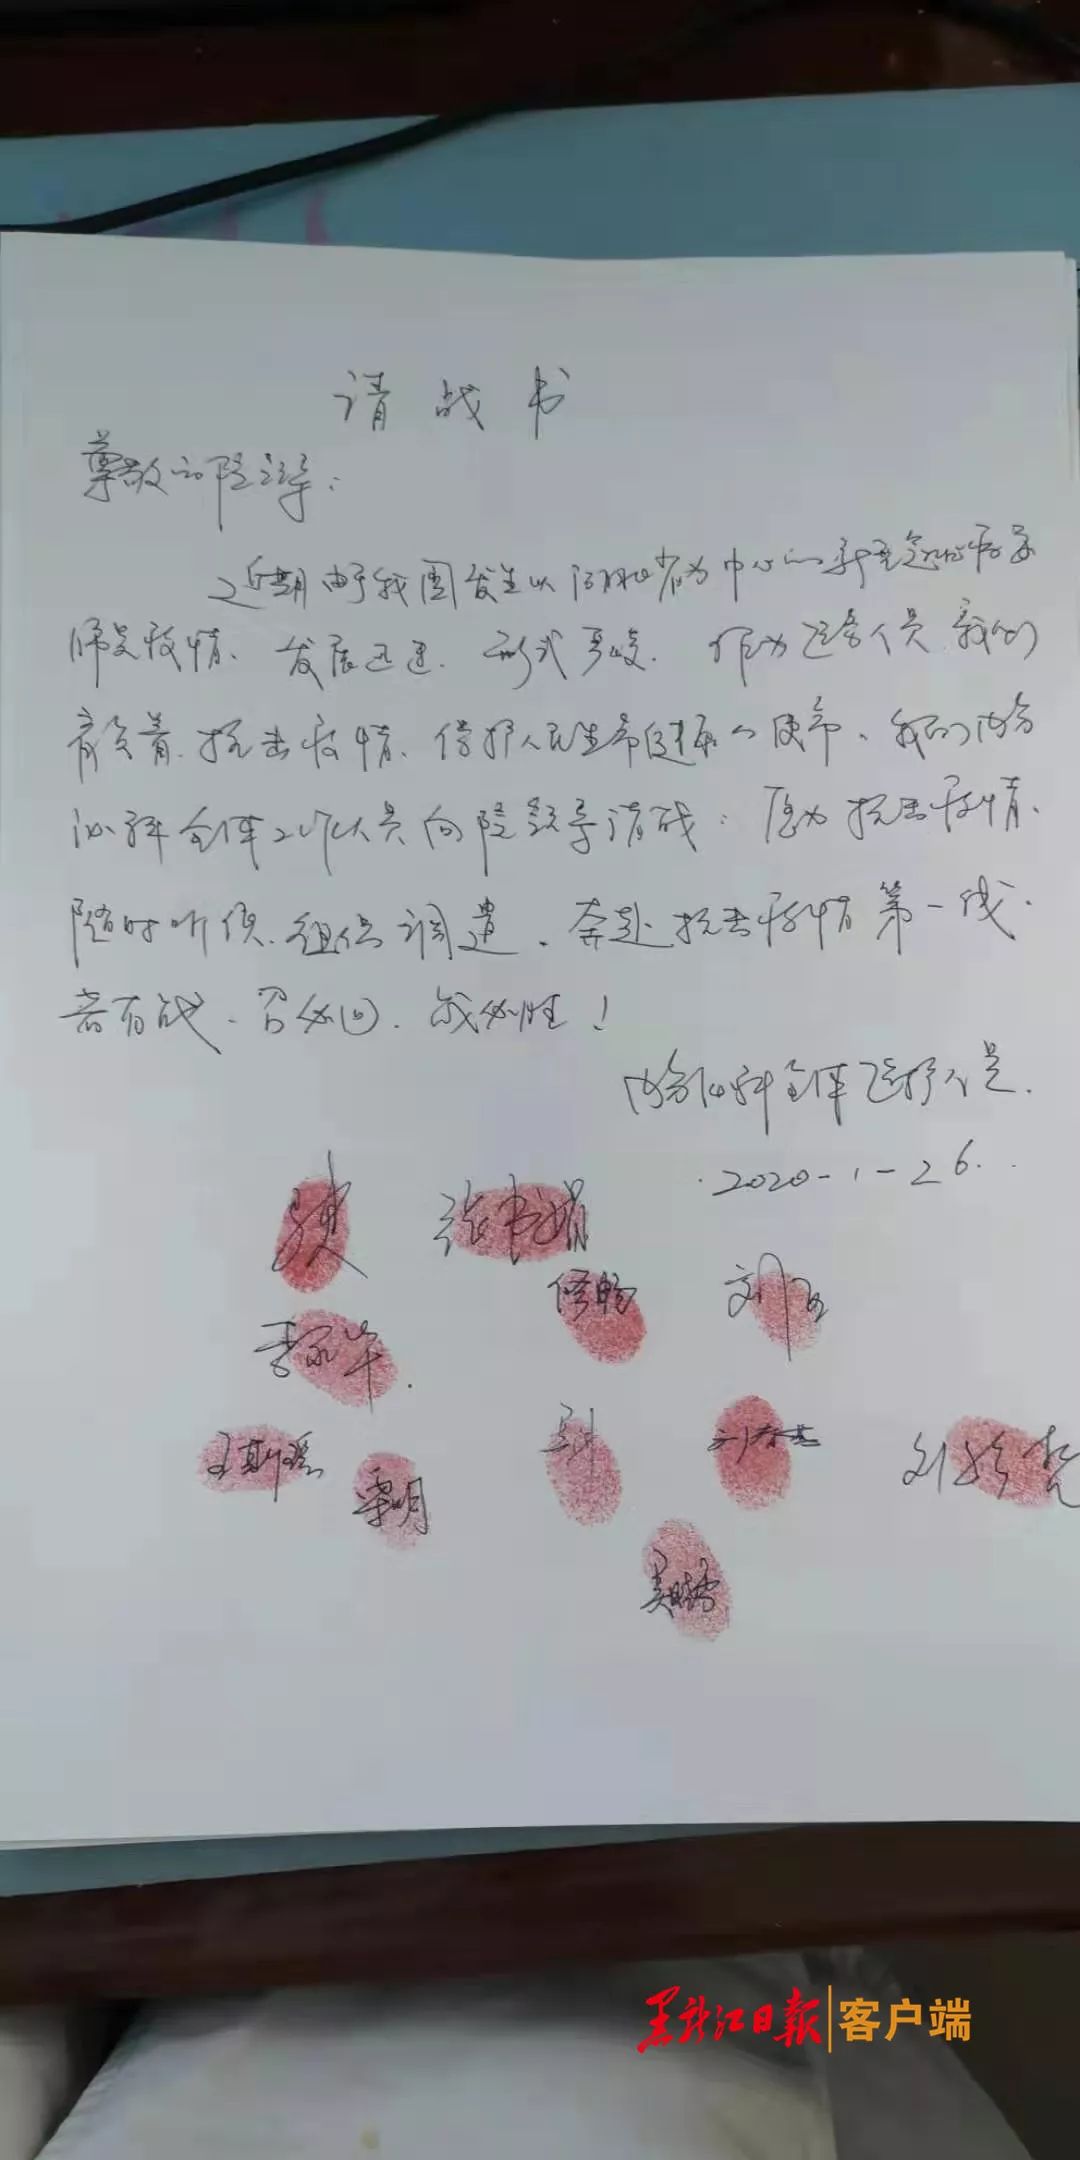 请战书
尊敬的院领导：
近期由于我国发生以湖北省为中心的新型冠状病毒
肺炎疫情、发展迅速、形式严峻. 作为医务人员、我们
肩负着、抗击疫情、保护人民生命健康的使命、我们内分
泌科全体工作人员向院领导请战：愿为抗击疫情、
随时听候、组织调遣、奔赴抗击疫情第一线.
若有战、召必回、战必胜！
内分泌科全体医护人员.
2020-1-26.
张书娟
修畅
刘
李永华.
王斯瑶
梁明
刘春
刘 哲
黑龙江日报 客户端